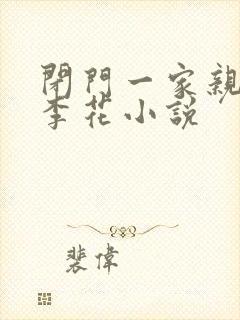 閉門一家親
李花小說
裴偉